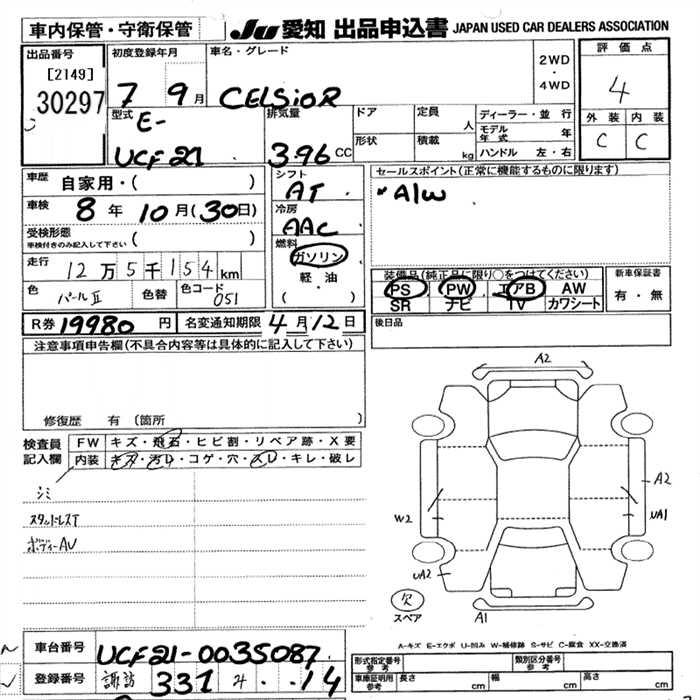 車内保管・守衛保管
JU 愛知 出品申込書 JAPAN USED CAR DEALERS ASSOCIATION
出品番号
[2149]
30297
初度登録年月
7 9月
車名・グレード
CELSIOR
2WD
・
4WD
評価点
4
外装 内装
C C
型式
E-
UCF21
排気量
3.96 CC
ドア
形状
定員 人
積載 kg
ディーラー・並行
モデル年式 年
ハンドル 左・右
車歴 自家用・( )
車検 8年 10月(30日)
受検形態
車検付きのみ記入して下さい ( )
走行 12万5千154km
色 パールⅡ 色替 色コード 051
シフト
AT
冷房
AAC
燃料
ガソリン
軽・油
( )
セールスポイント(正常に機能するものに限ります)
A/W
装備品(純正品に限り○をつけてください)
PS PW エアB AW
SR ナビ TV カワシート
新車保証書
有・無
R券 19980円 名変通知期限 4月12日
後日品
注意事項申告欄(不具合内容等は具体的に記入して下さい)
修復歴 有 (箇所 )
検査員記入欄
FW キズ・飛石・ヒビ割・リペア跡・X要
内装 キズ・汚れ・コゲ・穴・スレ・キレ・破レ
シミ
スタッドレスT
ボディーAU
A2
A2
UA1
W2
UA2
A1
欠
スペア
A-キズ E-エクボ U-凹み W-補修跡 S-サビ C-腐食 XX-交換済
車台番号 UCF21-0035087
登録番号 諏訪 331 14
形式指定番号 参考
類別区分番号 参考
車庫証明用 参考 長さ cm 幅 cm 高さ cm